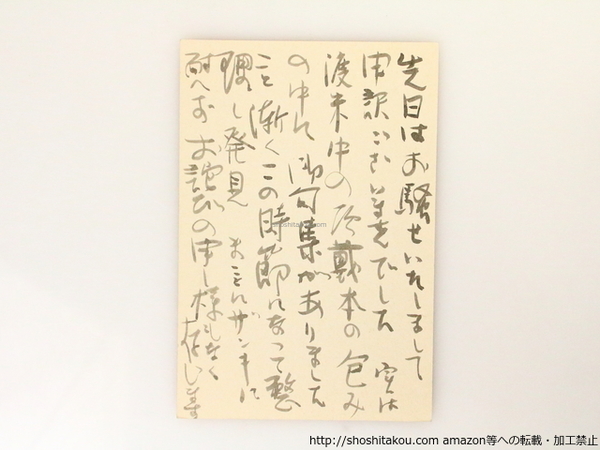 先日はお騒せいたしまして
申訳ございませんでした 実は
渡米中の頂戴本の包み
の中に 御句集がありました
こと漸くこの時節になって整
理し発見 まことにザンキに
耐へず お詫びの申し様もなく
存じます
shoshitakou.com
http://shoshitakou.com amazon等への転載・加工禁止